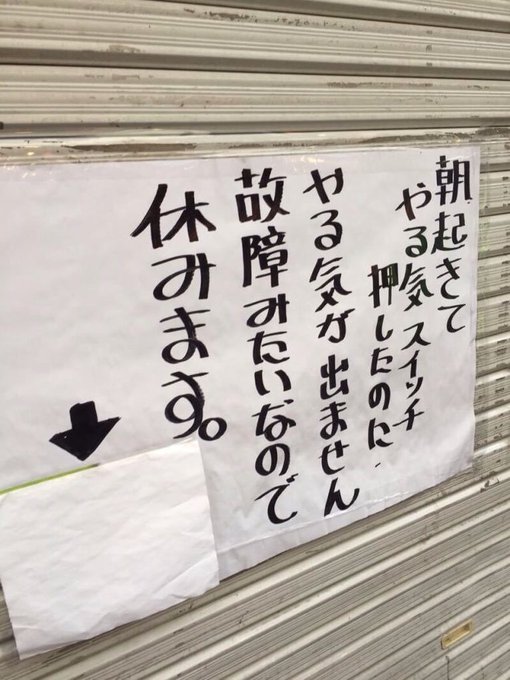 朝起きて
やる気スイッチ
押したのに、
やる気が出ません
故障みたいなので
休みます。